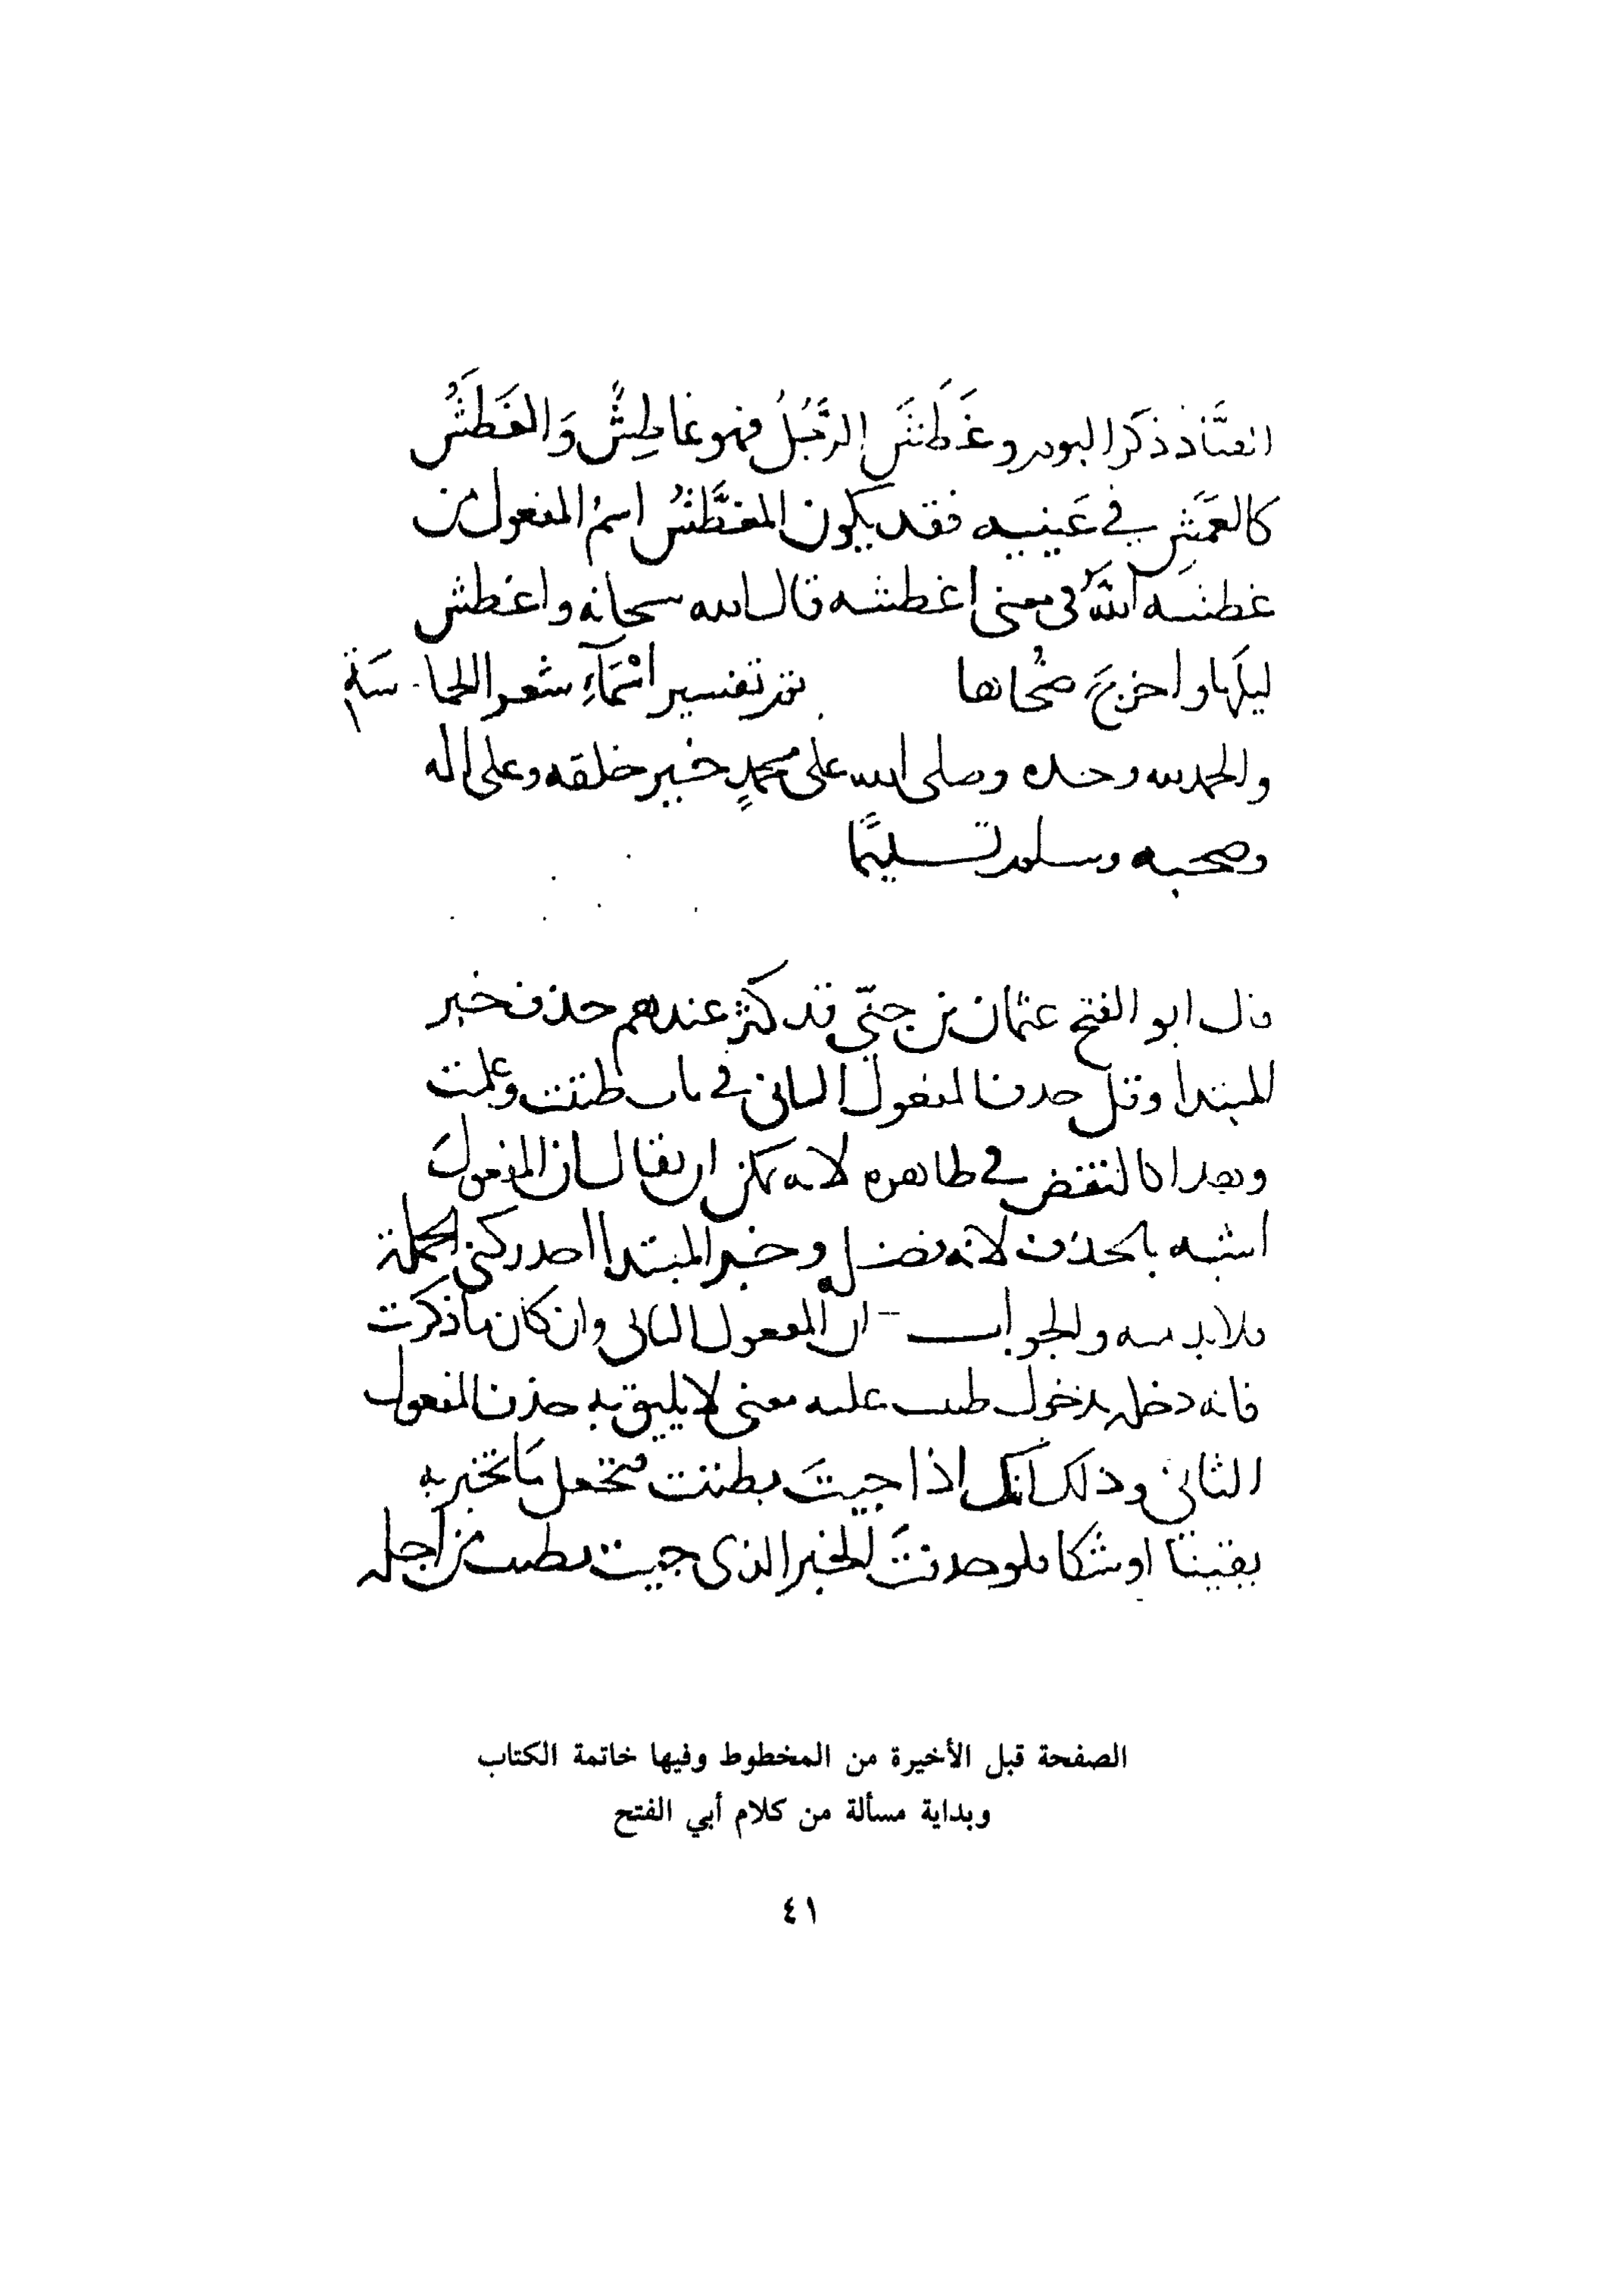 ذكر البوم وغَطَشَ الرَّجُلُ فهو غاطِشٌ وَالغَطَشُ
كالعَمَشِ في عَينيه فقد يكون المغطَّشُ اسمُ المفعول من
غطشه اللَّه في معنى اغطشه قال الله سبحانه واغطش
ليلها واخرج ضُحاها تم تفسير اسْمَآءِ شعر الحماسَة
والحمد لله وحده وصلى الله على محمدٍ خير خلقه وعلى اله
وصحبه وسلم تسليمًا
قال ابو الفتح عثمان بن جنّي قد كثر عندهم حذف خبر
المبتدا وقل حذف المفعول الثاني في باب ظننت وعلمت
وهذا كالنقض في ظاهره لانه يمكن ان يقال ان المفعول
اشبه بالحذف لانه فضل وخبر المبتدا احد ركني الجملة
فلا بد منه والجواب ان المفعول الثاني وان كان ما ذكرت
فانه دخله بدخول ظننت عليه معنى لا يليق به حذف المفعول
الثاني وذلك انك اذا جيتَ بظننت فتجعل مَا تخبر به
يقينا او شكا فلو حذفتَ الخبر الذي جيت بظننت من اجله
الصفحة قبل الأخيرة من المخطوط وفيها خاتمة الكتاب
وبداية مسألة من كلام أبي الفتح
٤١